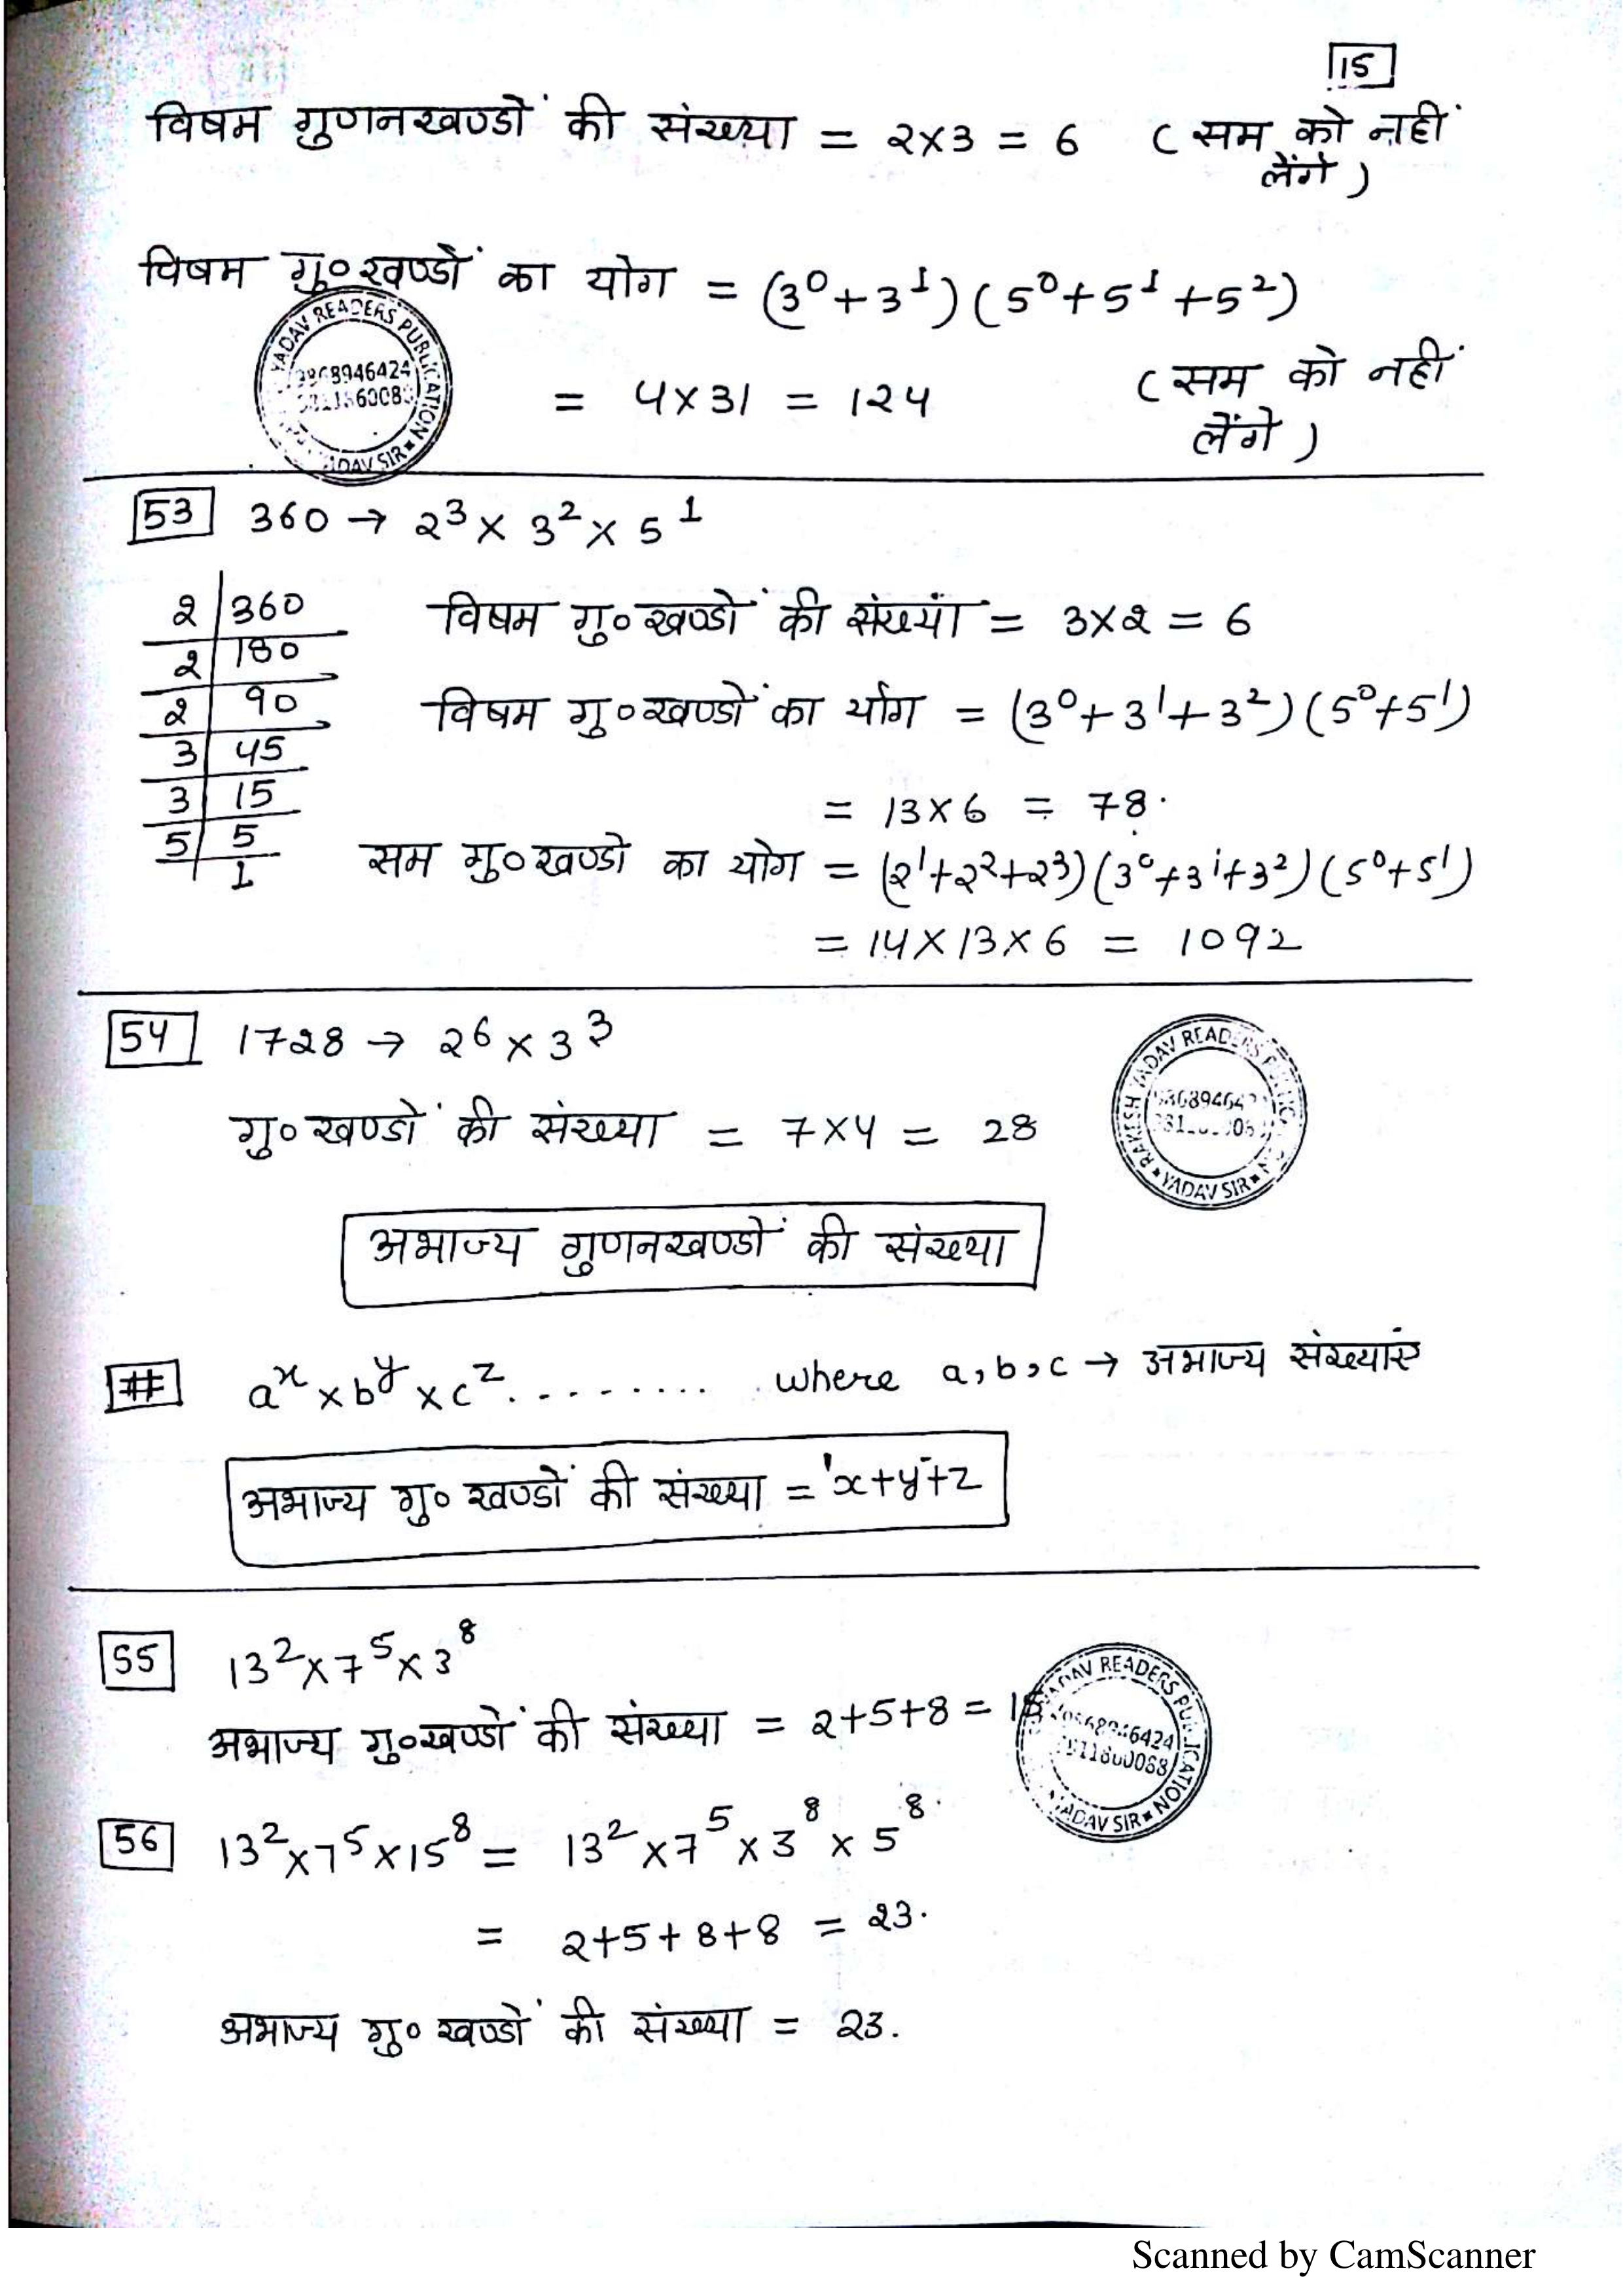 15
विषम गुणनखण्डों की संख्या = 2×3 = 6 ( सम को नहीं
लेंगे )
विषम गु०खण्डों का योग = (3⁰+3¹)(5⁰+5¹+5²)
= 4×31 = 124 ( सम को नहीं
लेंगे )
YADAV READERS PUBLICATION
YADAV SIR
53 360 → 2³× 3²× 5¹
2 360
2 180
2 90
3 45
3 15
5 5
1
विषम गु०खण्डों की संख्या = 3×2 = 6
विषम गु०खण्डों का योग = (3⁰+3¹+3²)(5⁰+5¹)
= 13×6 = 78.
सम गु०खण्डो का योग = (2¹+2²+2³)(3⁰+3¹+3²)(5⁰+5¹)
= 14×13×6 = 1092
54 1728 → 2⁶×3³
गु०खण्डों की संख्या = 7×4 = 28
RAKESH YADAV READERS
YADAV SIR
अभाज्य गुणनखण्डों की संख्या
# aˣ×bʸ×cᶻ......... where a,b,c → अभाज्य संख्याएं
अभाज्य गु० खण्डों की संख्या = x+y+z
55 13²×7⁵×3⁸
अभाज्य गु०खण्डों की संख्या = 2+5+8 = 15
YADAV READERS PUBLICATION
YADAV SIR
56 13²×7⁵×15⁸ = 13²×7⁵×3⁸×5⁸.
= 2+5+8+8 = 23.
अभाज्य गु० खण्डों की संख्या = 23.
Scanned by CamScanner